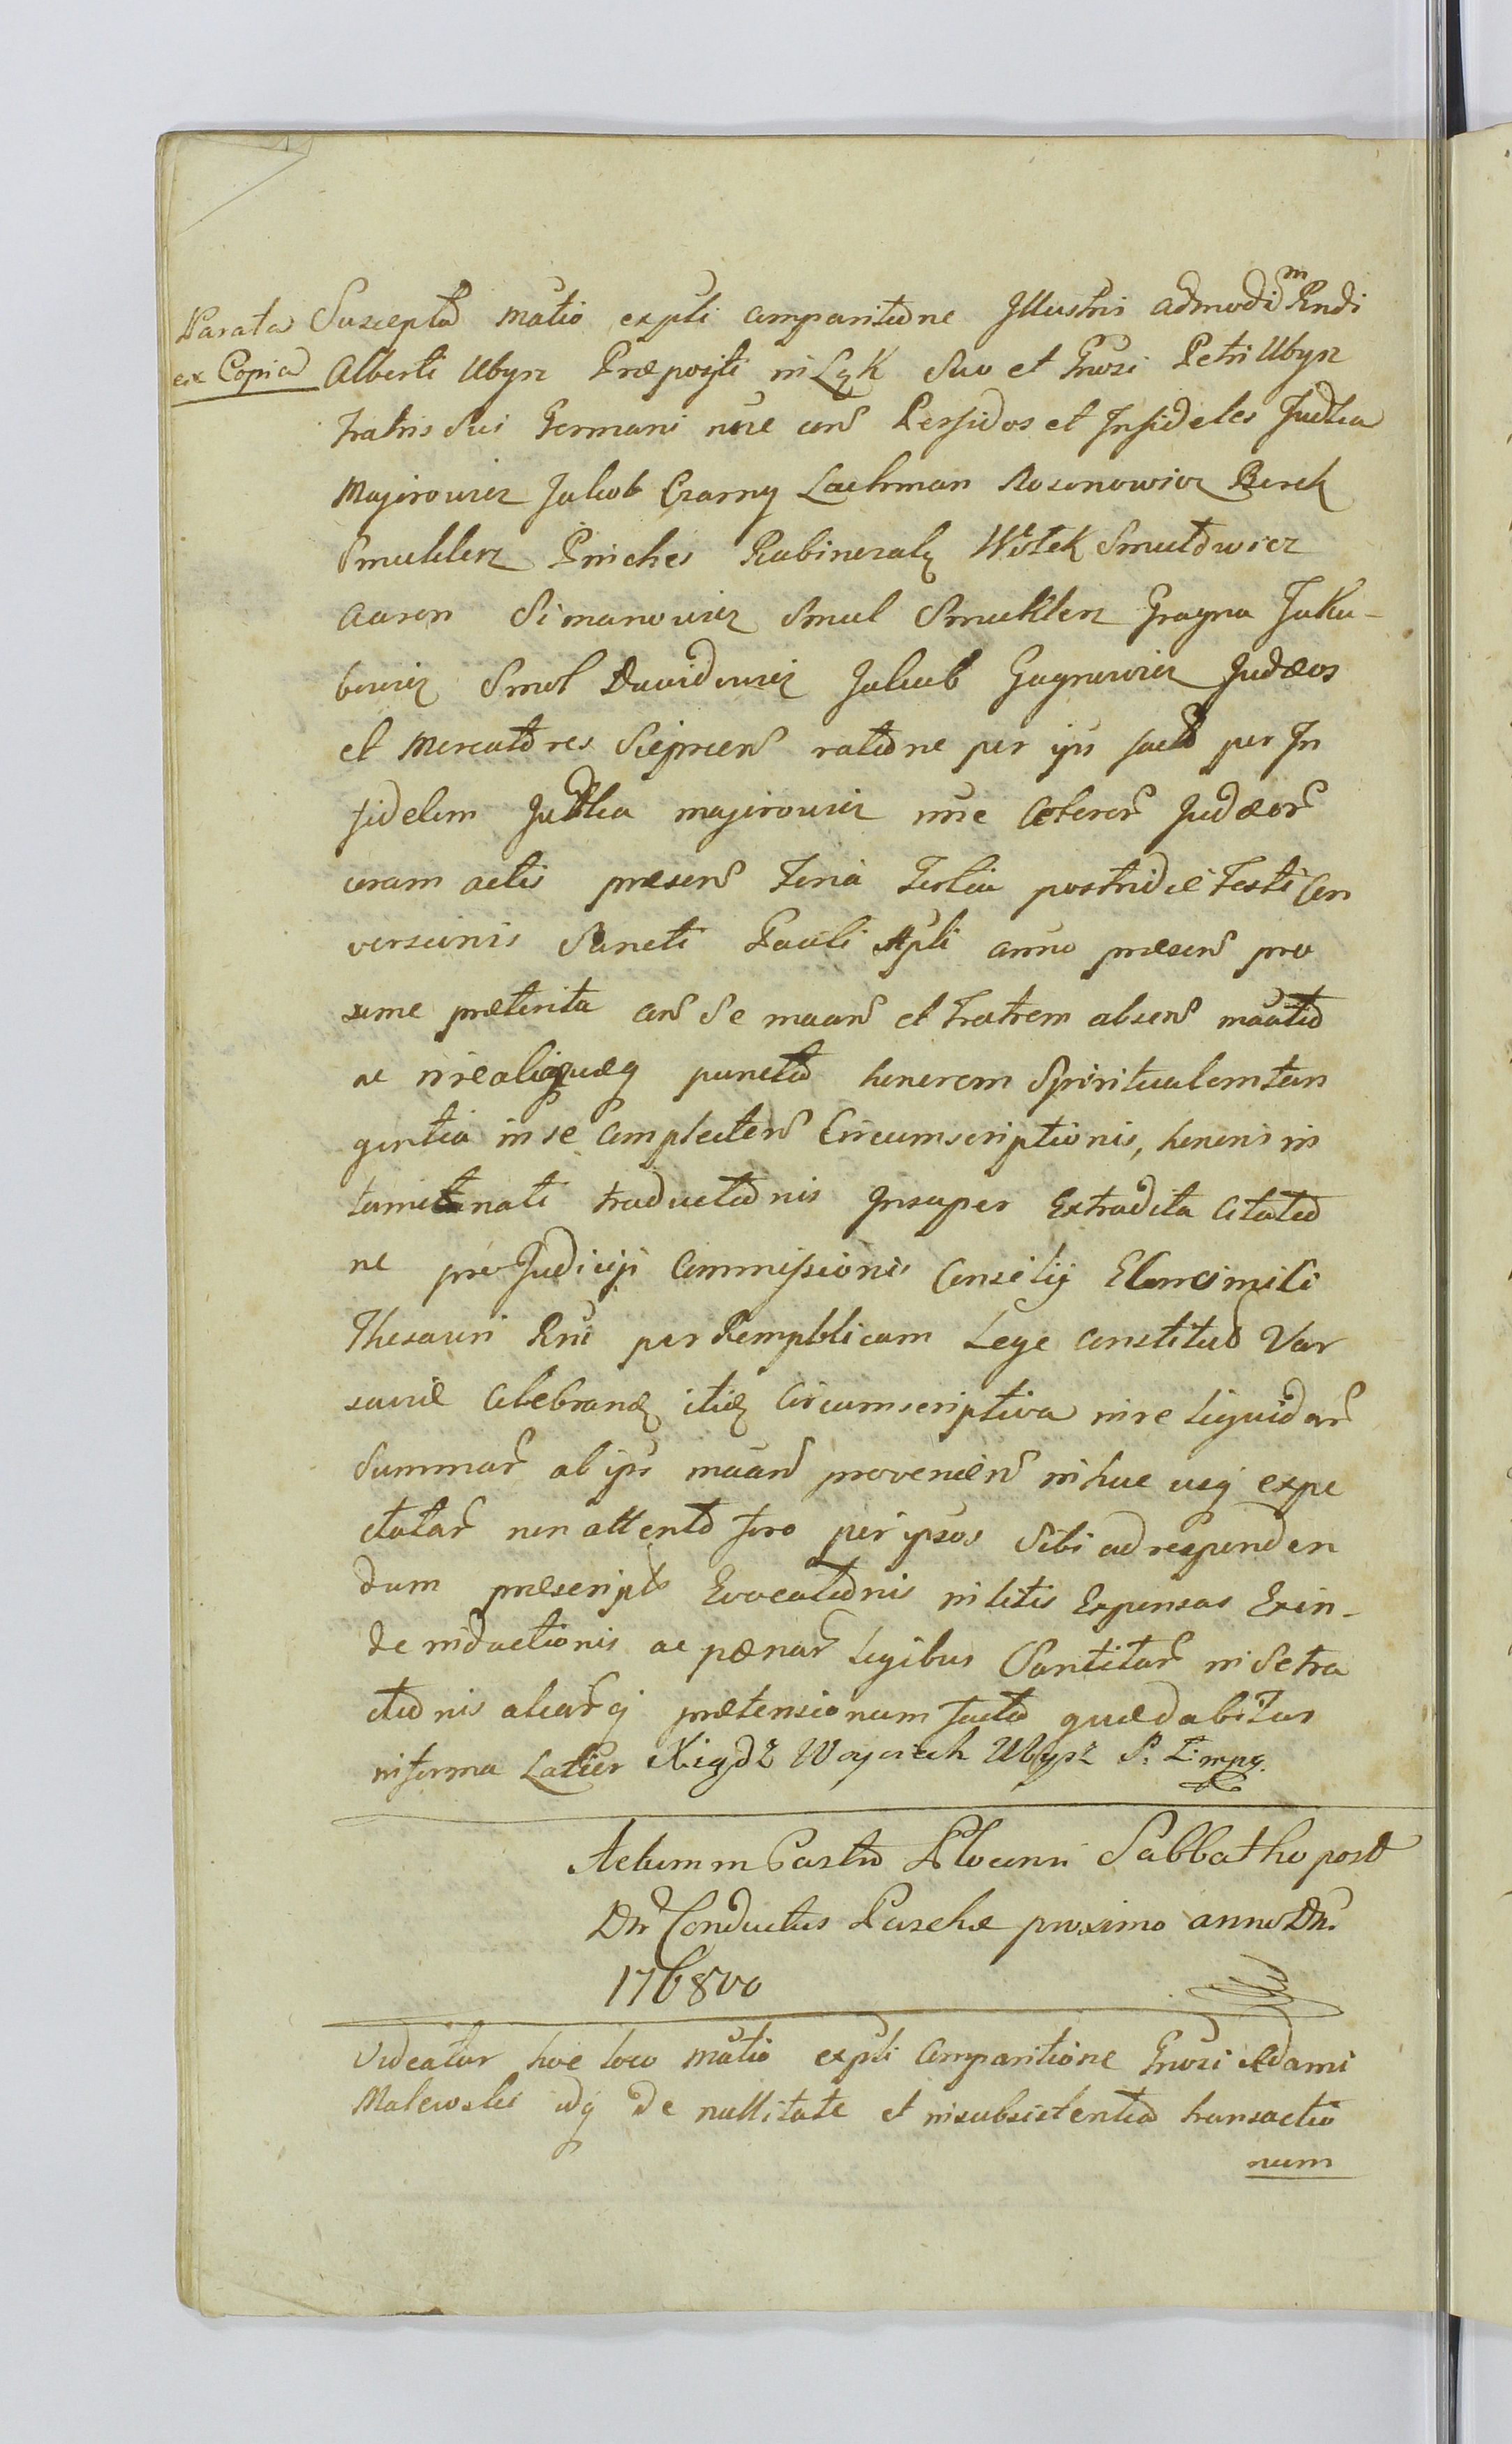 Parata
ex Copia
Suscepta Matio expti comparitione Illustri admodum Rndi
Alberti Ubysz Præpositi in Łęk Suo et Gnosi Petri Ubysz
Fratris Sui Germani nne con Perfidos et Infideles Judka
Majerowicz Jakob Czarny Lachman Rosenowicz Berek
Smuklerz Pinches Rabinczak Wistek Smulowicz
Aaron Simanowicz Smul Smuklerz Gragna Jaku-
bowicz Smol Davidowicz Jakub Gagnowicz Judæos
et Mercatores Sieprcen ratione per ips facta per In
fidelem Judka Majerowicz nne Ceteror Judæor
coram actis præsen Feria Tertia postridie Festi Con
versionis Sancti Pauli Apli anno præsen pro
xime præterita con Se maan et Fratrem absen
ac in realiquæq puncta honorem Spiritualem tan
gentia in se complecten Circumscriptionis, honoris in
taminati traductionis Insuper Extradita Citatio
ne pro Judicijs Commissionis Consilij Elomosimili
Thesauri Rni per Rempblicam Lege constituta Var
saviæ Celebran itiq Circumscriptiva in re liquidar
Summar ab ips maan provenien in huc usq expe
ctatar non attento foro per ipsos Sibi ad responden
dum præscripto Evocationis in litis Expensas Exin-
de inductionis ac pænar Legibus Santitar in Se tra
ctionis aliarq prætensionum facta quædabitur
in forma Latior Xiądz Woyciech Ubysz P. Ł. mpq.
Actum in Castro Plocensi Sabbatho post
Dn Conductus Paschæ proximo anno Dn.
1768vo
Videatur hoc loco Matio expti Comparitione Gnosi Adami
Malewski idq de nullitate et insubsistentia transactio
num